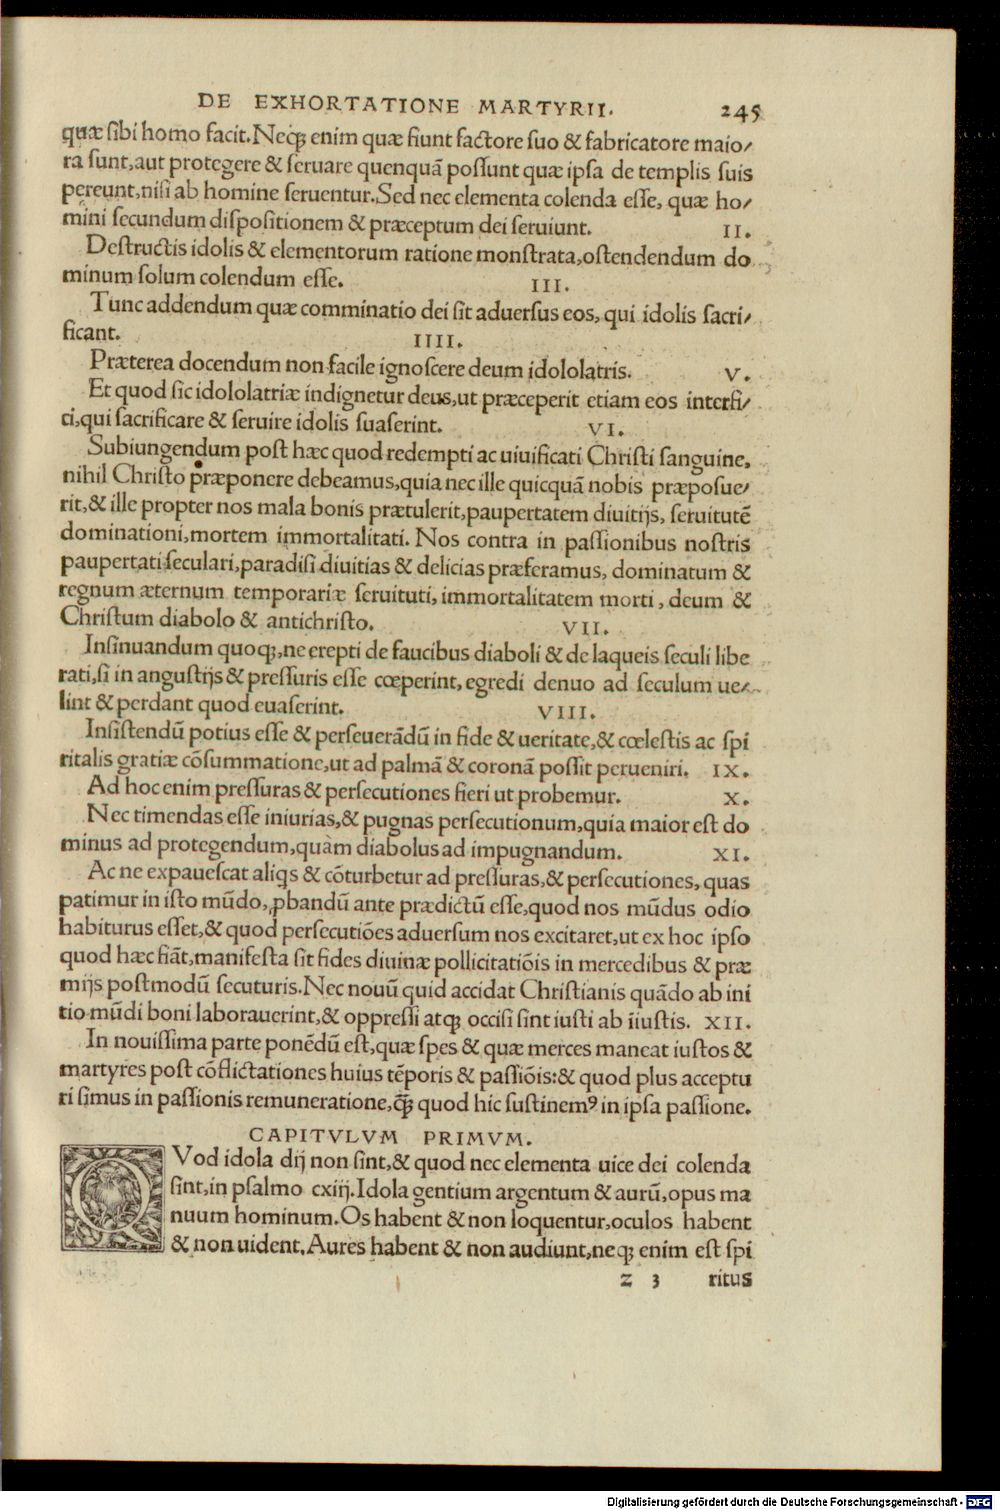 DE EXHORTATIONE MARTYRII. 245
quæ sibi homo facit. Neq; enim quæ fiunt factore suo & fabricatore maio/
ra sunt, aut protegere & seruare quenquā possunt quæ ipsa de templis suis
pereunt, nisi ab homine seruentur. Sed nec elementa colenda esse, quæ ho/
mini secundum dispositionem & præceptum dei seruiunt. II.
Destructis idolis & elementorum ratione monstrata, ostendendum do
minum solum colendum esse. III.
Tunc addendum quæ comminatio dei sit aduersus eos, qui idolis sacri/
ficant. IIII.
Præterea docendum non facile ignoscere deum idololatris. V.
Et quod sic idololatriæ indignetur deus, ut præceperit etiam eos interfi/
ci, qui sacrificare & seruire idolis suaserint. VI.
Subiungendum post hæc quod redempti ac uiuificati Christi sanguine,
nihil Christo præponere debeamus, quia nec ille quicquā nobis præposue/
rit, & ille propter nos mala bonis prætulerit, paupertatem diuitijs, seruitutē
dominationi, mortem immortalitati. Nos contra in passionibus nostris
paupertati seculari, paradisi diuitias & delicias præferamus, dominatum &
regnum æternum temporariæ seruituti, immortalitatem morti, deum &
Christum diabolo & antichristo. VII.
Insinuandum quoq;, ne erepti de faucibus diaboli & de laqueis seculi libe
rati, si in angustijs & pressuris esse cœperint, egredi denuo ad seculum ue/
lint & perdant quod euaserint. VIII.
Insistendū potius esse & perseuerādū in fide & ueritate, & cœlestis ac spi
ritalis gratiæ cōsummatione, ut ad palmā & coronā possit perueniri. IX.
Ad hoc enim pressuras & persecutiones fieri ut probemur. X.
Nec timendas esse iniurias, & pugnas persecutionum, quia maior est do
minus ad protegendum, quàm diabolus ad impugnandum. XI.
Ac ne expauescat aliqs & cōturbetur ad pressuras, & persecutiones, quas
patimur in isto mūdo, ꝓbandū ante prædictū esse, quod nos mūdus odio
habiturus esset, & quod persecutiōes aduersum nos excitaret, ut ex hoc ipso
quod hæc fiāt, manifesta sit fides diuinæ pollicitatiōis in mercedibus & præ
mijs postmodū secuturis. Nec nouū quid accidat Christianis quādo ab ini
tio mūdi boni laborauerint, & oppressi atq; occisi sint iusti ab iīustis. XII.
In nouissima parte ponēdū est, quæ spes & quæ merces maneat iustos &
martyres post cōflictationes huius tēporis & passiōis: & quod plus acceptu
ri simus in passionis remuneratione, q̄; quod hic sustinemꝰ in ipsa passione.
CAPITVLVM PRIMVM.
QVod idola dij non sint, & quod nec elementa uice dei colenda
sint, in psalmo cxiij. Idola gentium argentum & aurū, opus ma
nuum hominum. Os habent & non loquentur, oculos habent
& non uident. Aures habent & non audiunt, neq; enim est spi
z 3 ritus
Digitalisierung gefördert durch die Deutsche Forschungsgemeinschaft - DFG